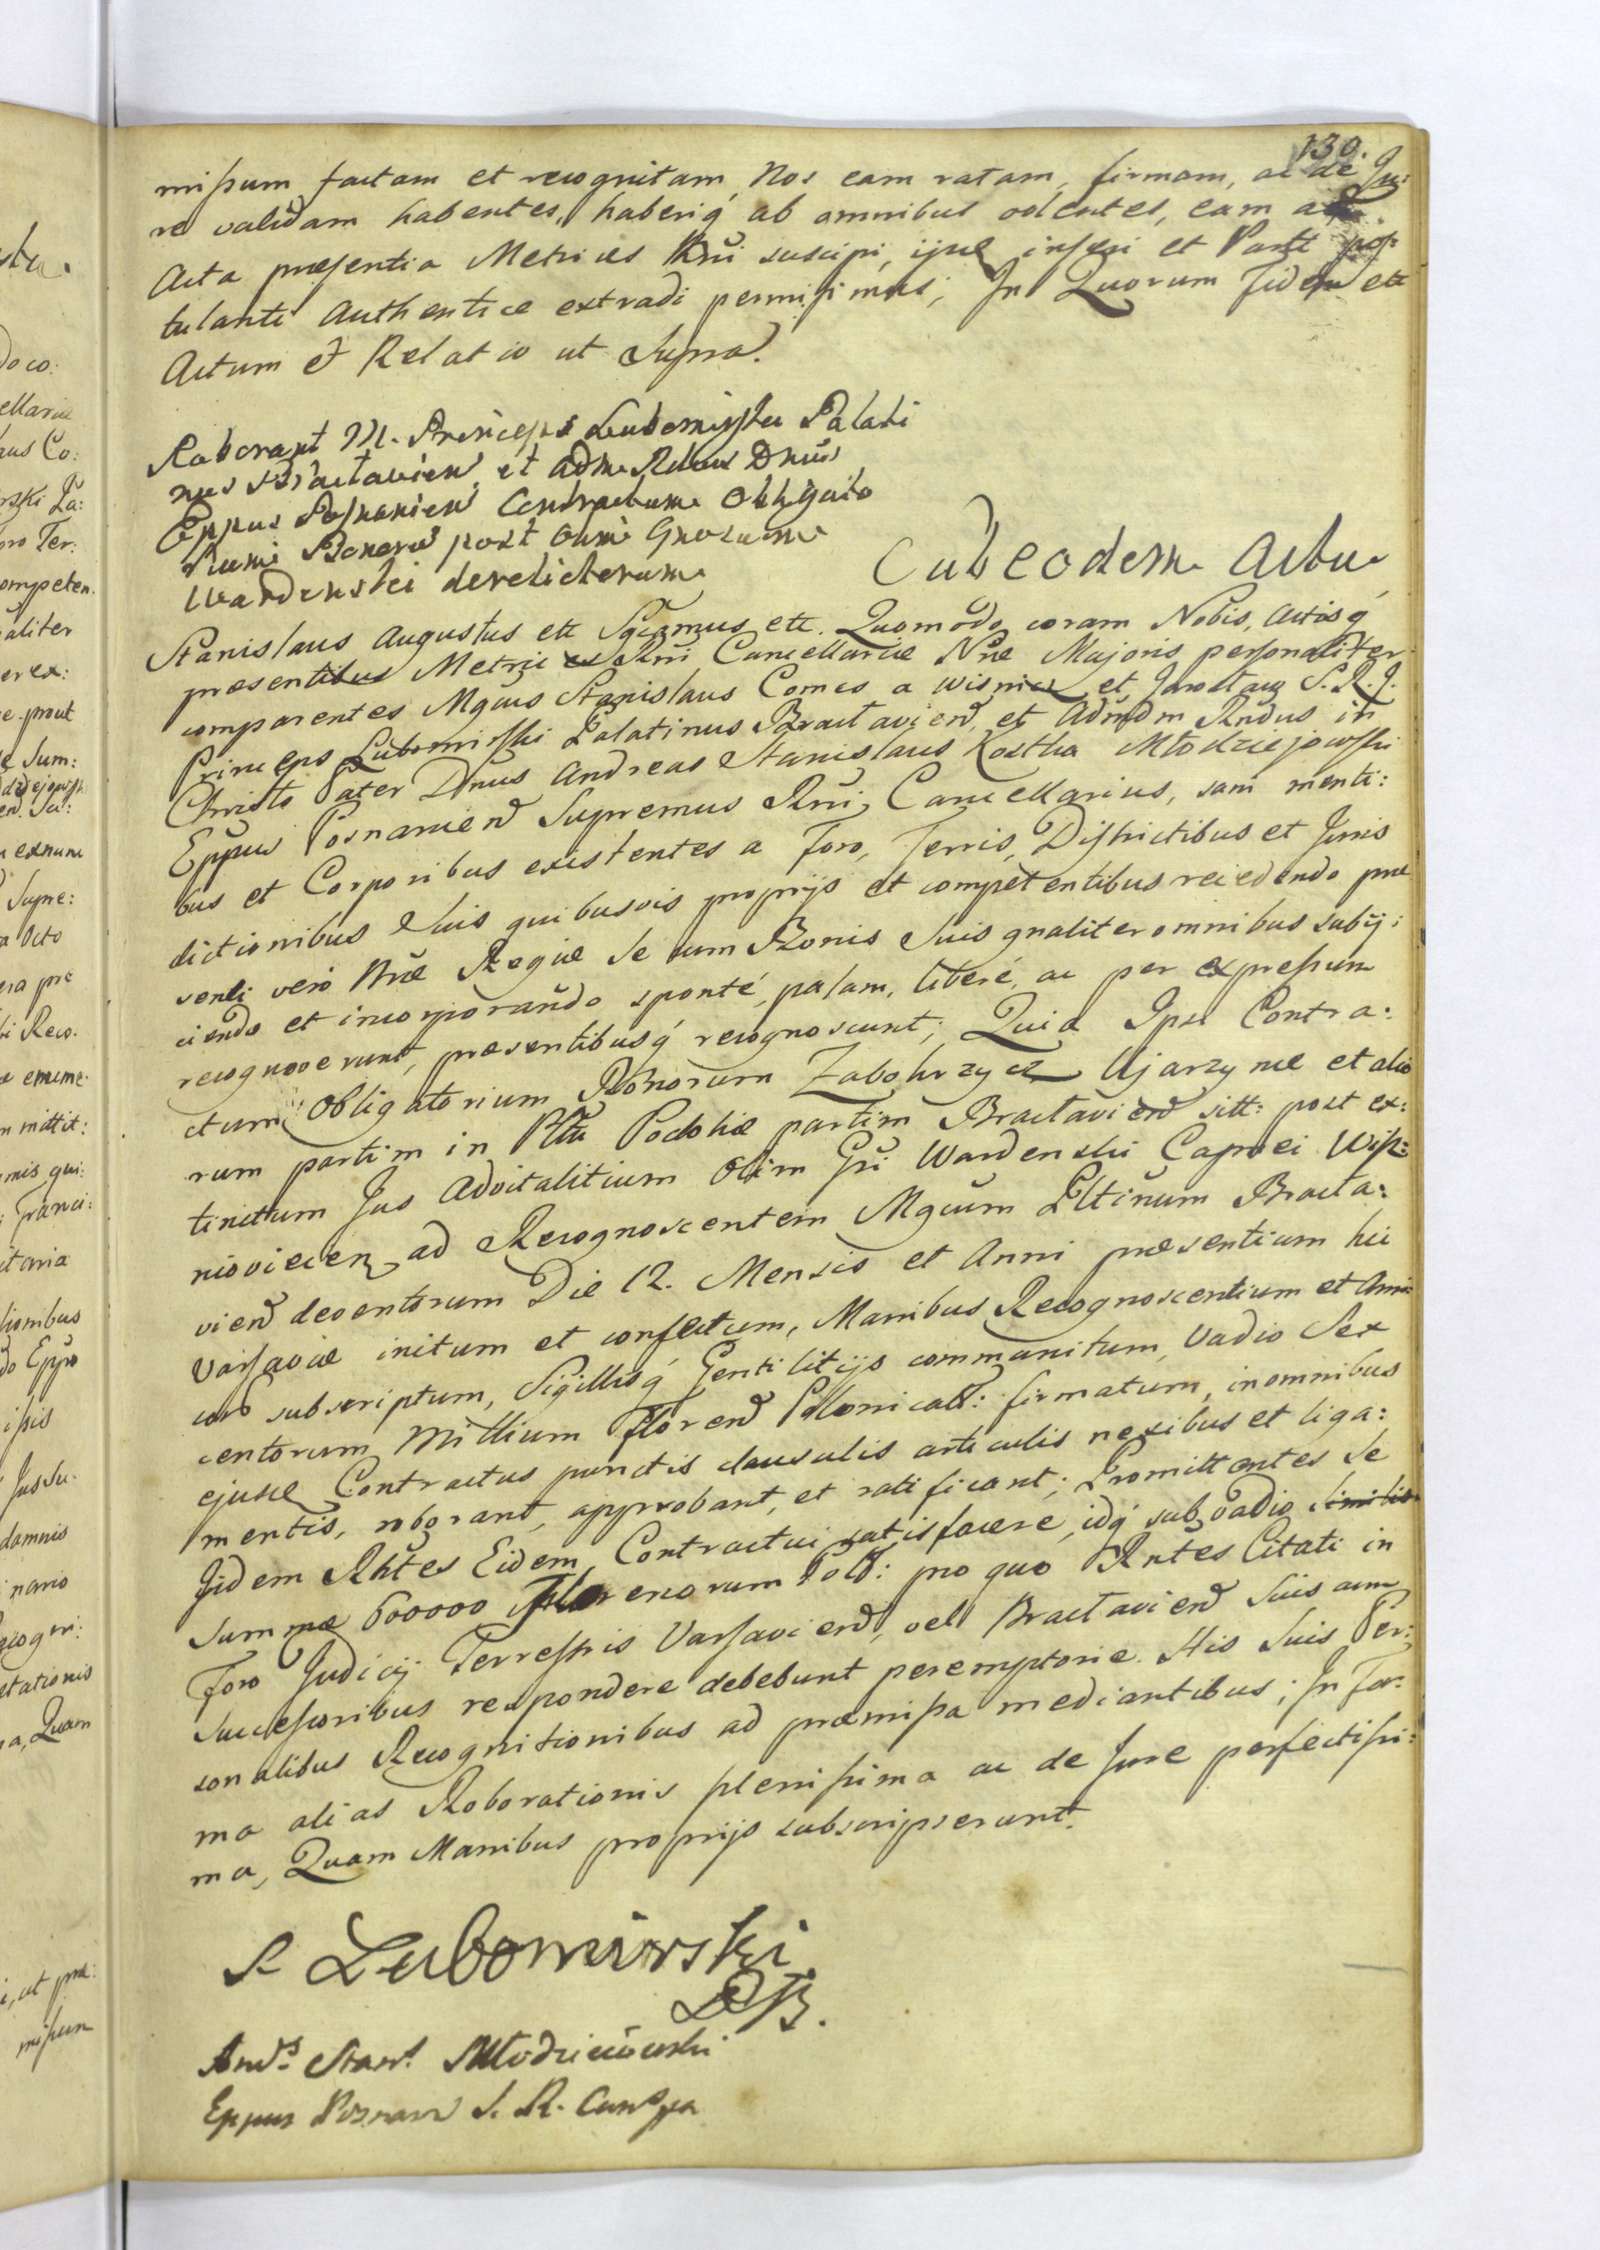 130.
missum factam et recognitam, Nos eam ratam, firmam, ac de Ju:
re validam habentes, haberiq́ ab omnibus volentes, eam ad
Acta præsentia Metrices Rñi suscipi, ijsq inseri et Parti pos:
tulanti Authentice extradi permisimus; In Quorum Fidem etc
Actum et Relatio ut Supra.
Roborant M. Princeps Lubomirski Palati
nus Braclavien et Adm Rdus Dnus
Eppus Posnanien Contractum Obligato
rium Bonorum post olim Gnosum
Wardenski derelictorum
Sub eodem Actu
Stanislaus Augustus etc Sgcamus etc. Quomodo coram Nobis, Actisq́
præsentibus Metrices Rñi Cancellariæ Nræ Majoris personaliter
comparentes Mgcus Stanislaus Comes a Wisnicz et Jaroslau S. R. J.
Princeps Lubomirski Palatinus Braclavien, et Admdm Rndus in
Christo Pater Dnus Andreas Stanislaus Kostka Młodziejowski
Eppus Posnanien Supremus Rñi Cancellarius, sani menti:
bus et Corporibus existentes a Foro, Terris, Districtibus et Juris
dictionibus Suis quibusvis proprijs et competentibus recedendo præ
senti vero Nræ Regiæ se cum Bonis Suis gnaliter omnibus subij:
ciendo et incorporando sponté, palam, liberé, ac per expressum
recognoverunt, præsentibusq́ recognoscunt; Quia Ipsi Contra:
ctum Obligatorium Bonorum Zabokrzycz Ujarzyńce et alio
rum partim in Pltu Podoliæ partim Braclavien sitt: post ex:
tinctum Jus Advitalitium Olim Gsi Wardenski Capnei Wisz:
nioviecen ad Recognoscentem Mgcum Pltinum Bracla:
vien deventorum Die 12. Mensis et Anni præsentium hic
Varsaviæ initum et confectum, Manibus Recognoscentium et Ami
coru subscriptum, Sigillisq́ Gentilitijs communitum, Vadio Sex
centorum Millium Floren Polonicali: firmatum, in omnibus
ejusq Contractus punctis clausulis articulis nexibus et liga:
mentis, roborant, approbant, et ratificant; Promittentes Se
Iidem Rñtes Eidem Contractui satisfacere, idq́ sub vadio similis
Summæ 600000 Florenorum Poll: pro quo Rntes Citati in
Foro Judicij Terrestris Varsavien, vel Braclavien Suis cum
Successoribus respondere debebunt peremptorie. His Suis Per:
sonalibus Recognitionibus ad præmissa mediantibus; In For:
ma alias Roborationis plenissima ac de Jure perfectissi:
ma, Quam Manibus proprijs subscripserunt.
S Lubomirski
PB.
And.s Stan.s Młodzieiowski
Eppus Posnan S. R. Canc